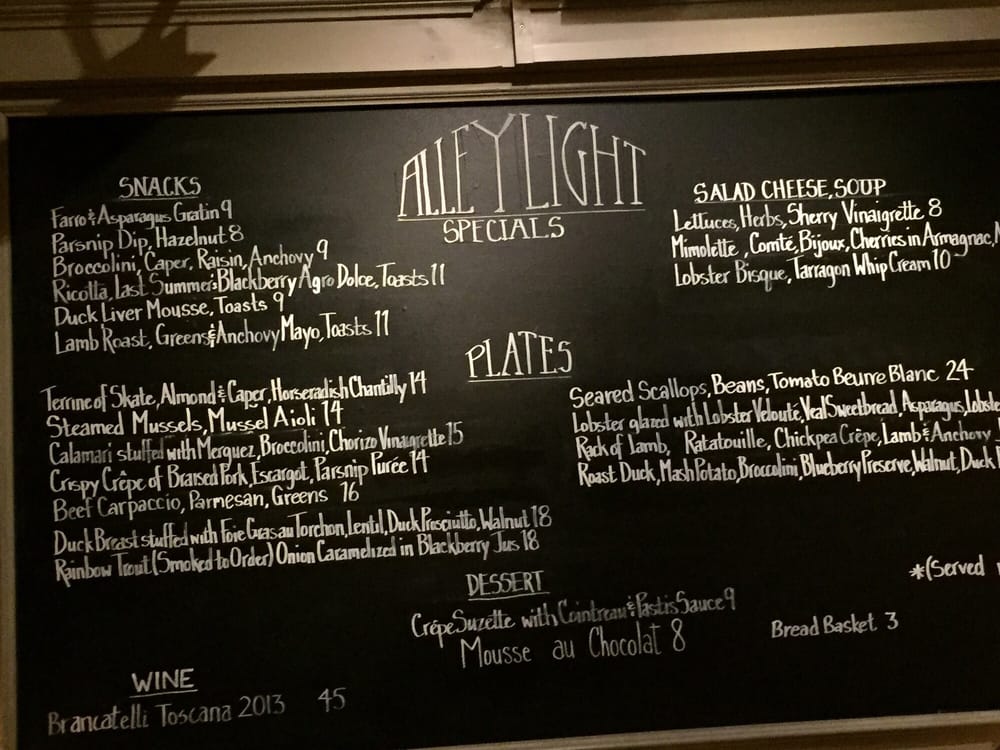 ALLEY LIGHT
SPECIALS
SNACKS
Farro & Asparagus Gratin 9
Parsnip Dip, Hazelnut 8
Broccolini, Caper, Raisin, Anchovy 9
Ricotta, Last Summer's Blackberry Agro Dolce, Toasts 11
Duck Liver Mousse, Toasts 9
Lamb Roast, Greens & Anchovy Mayo, Toasts 11
SALAD CHEESE, SOUP
Lettuces, Herbs, Sherry Vinaigrette 8
Mimolette, Comté, Bijoux, Cherries in Armagnac,
Lobster Bisque, Tarragon Whip Cream 10
PLATES
Terrine of Skate, Almond & Caper, Horseradish Chantilly 14
Steamed Mussels, Mussel Aioli 14
Calamari stuffed with Merguez, Broccolini, Chorizo Vinaigrette 15
Crispy Crêpe of Braised Pork, Escargot, Parsnip Purée 14
Beef Carpaccio, Parmesan, Greens 16
Duck Breast stuffed with Foie Gras au Torchon, Lentil, Duck Prosciutto, Walnut 18
Rainbow Trout (Smoked to Order) Onion Caramelized in Blackberry Jus 18
Seared Scallops, Beans, Tomato Beurre Blanc 24
Lobster glazed with Lobster Velouté, Veal Sweetbread, Asparagus, Lobste
Rack of Lamb, Ratatouille, Chickpea Crêpe, Lamb & Anchovy
Roast Duck, Mash Potato, Broccolini, Blueberry Preserve, Walnut, Duck
*(Served
DESSERT
Crêpe Suzette with Cointreau & Pastis Sauce 9
Mousse au Chocolat 8
Bread Basket 3
WINE
Brancatelli Toscana 2013 45